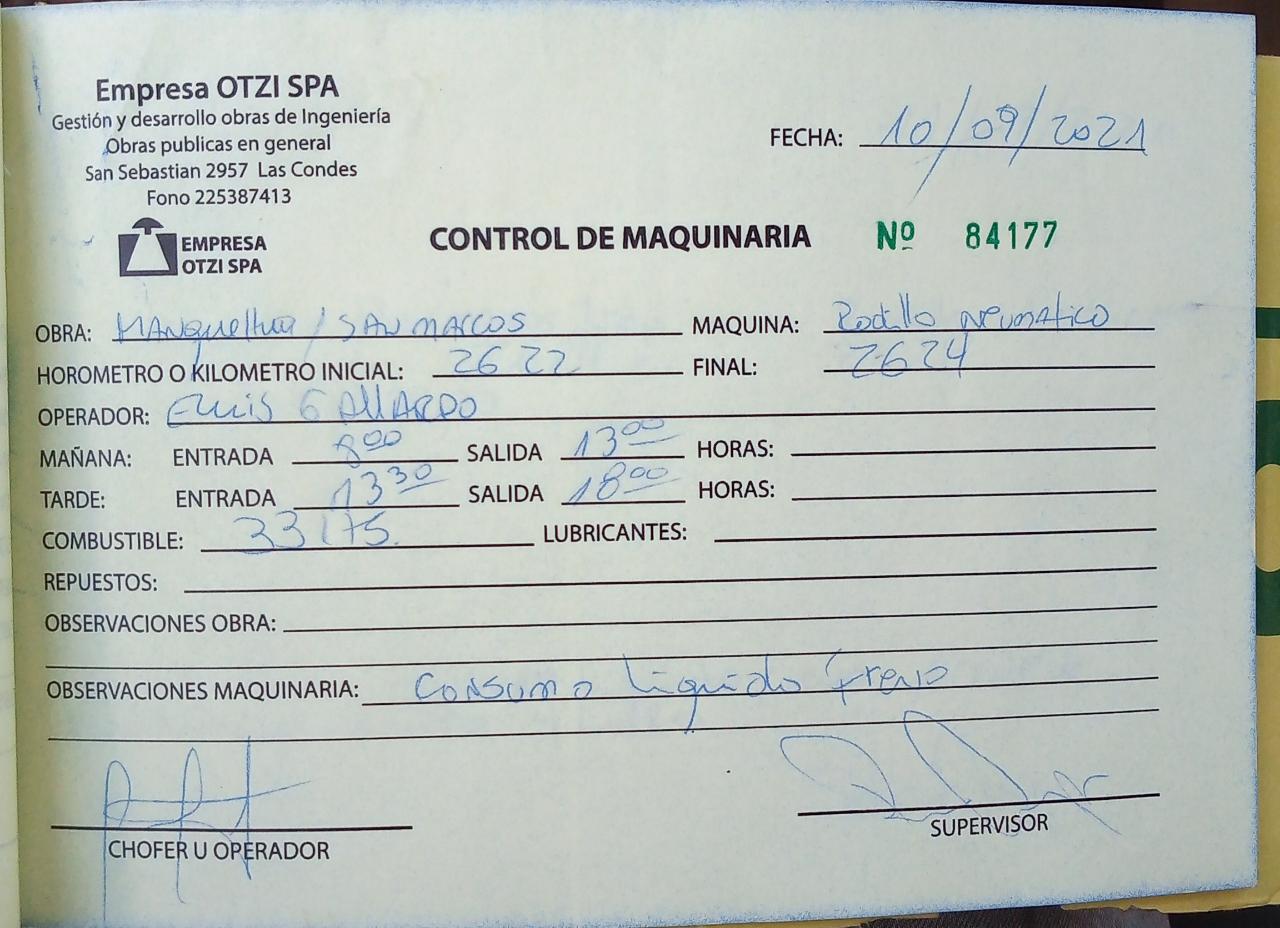 Empresa OTZI SPA
Gestión y desarrollo obras de Ingeniería
Obras publicas en general
San Sebastian 2957 Las Condes
Fono 225387413
FECHA: 10/09/2021
EMPRESA
OTZI SPA
CONTROL DE MAQUINARIA Nº 84177
OBRA: / SAN MARCOS MAQUINA: Rodillo Neumatico
HOROMETRO O KILOMETRO INICIAL: 2622 FINAL: 2624
OPERADOR: GALLARDO
MAÑANA: ENTRADA 800 SALIDA 1300 HORAS:
TARDE: ENTRADA 13 30 SALIDA 18 00 HORAS:
COMBUSTIBLE: 33 lts. LUBRICANTES:
REPUESTOS:
OBSERVACIONES OBRA:
OBSERVACIONES MAQUINARIA: Consumo liquido freno
CHOFER U OPERADOR
SUPERVISOR